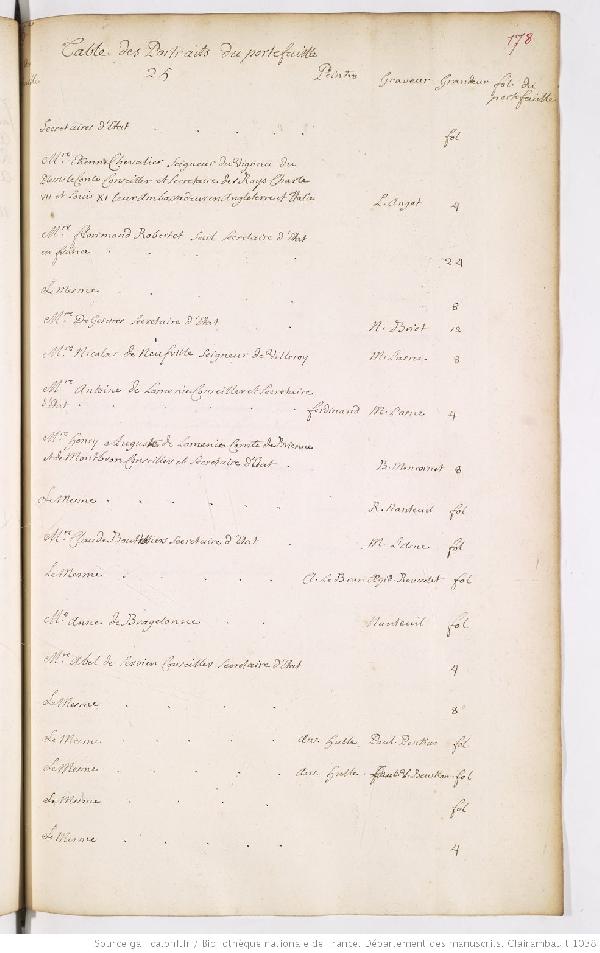 178
Table des Portraits du portefeuille
25 Peintre Graveur Grandeur fol. du
portefeuille
Secretaires d'Etat . . . . fol
Mre Etienne Chevalier Seigneur du Vignau du
Conseiller et Secretaire des Roys Charle
VII et Louis XI leur Ambassadeur en Angleterre et Italie L. Auget 4
Mre Florimond Robertet seul Secretaire d'Etat
en france . . . . 24
Le Mesme . . . 8
Mre De Gesvres Secretaire d'Etat . . N. Briot 12
Mre Nicolas de Neufville Seigneur de Villeroy M. Lasne 8
Mre Antoine de Lomenie Conseiller et Secretaire
d'Etat . . . . ferdinand M. Lasne 4
Mre henry Auguste de Lomenie Comte de Brienne
et de Montbron Conseiller et Secretaire d'Etat . B. Moncornet 8
Le Mesme . . . . R. Nanteuil fol
Mre Claude Bouthillier Secretaire d'Etat . M. Lasne fol
Le Mesme . . . C. Le Brun Egid. Rousselet fol
Me Anne de Bragelonne . . Nanteuil fol
Mre Abel de Servien Conseiller Secretaire d'Etat 4
Le Mesme . . . . 8
Le Mesme . . . Ans. hulle Paul. Pontius fol
Le Mesme . . . Ans. hulle fol
Le Mesme . . . . fol
Le Mesme . . . . 4
Source gallica.bnf.fr / Bibliothèque nationale de France. Département des manuscrits. Clairambault 1038